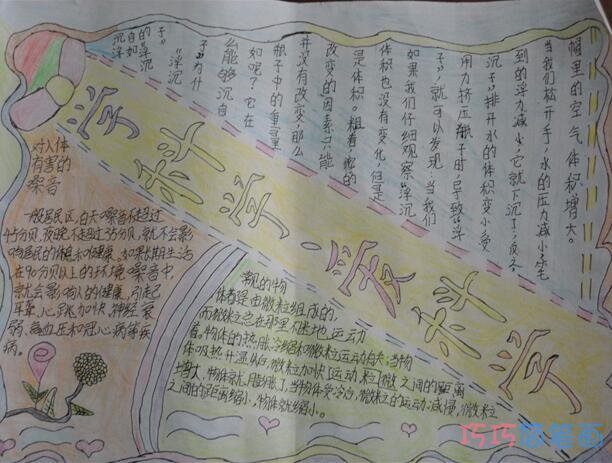 沉浮
自如
的浮沉
子”
“浮沉
子”有什
么能够沉自
如呢？它在
瓶子中的重量
并没有改变，那么
改变的因素只能
是体积。粗看瓶的
体积也没有变化，但是
如果我们仔细观察“浮沉
子”，就可以发现：当我们
用力挤压瓶子时，导致“浮
沉子”排开水的体积变小，受
到的浮力减小，它就下沉了；反之
当我们松开手，水的压力减小，笔
帽里的空气体积增大。
学科学·爱科学
对人体
有害的
噪音
一般居民区，白天噪音不超过
45分贝，夜晚不超过35分贝，就不会影
响居民的休息和健康，如果长期生活
在90分贝以上的环境噪音中，
就会影响人的健康，引起
耳聋，心跳加快，神经衰
弱，高血压和冠心病等疾
病。
常见的物
体都是由微粒组成的，
而微粒总在那里不断地运动
着。物体的热胀冷缩和微粒运动有关，当物
体吸热升温以后，微粒加快了运动，微粒之间的距离
增大，物体就膨胀了；当物体受冷后，微粒的运动减慢，微粒
之间的距离缩小，物体就缩小。
巧巧简笔画